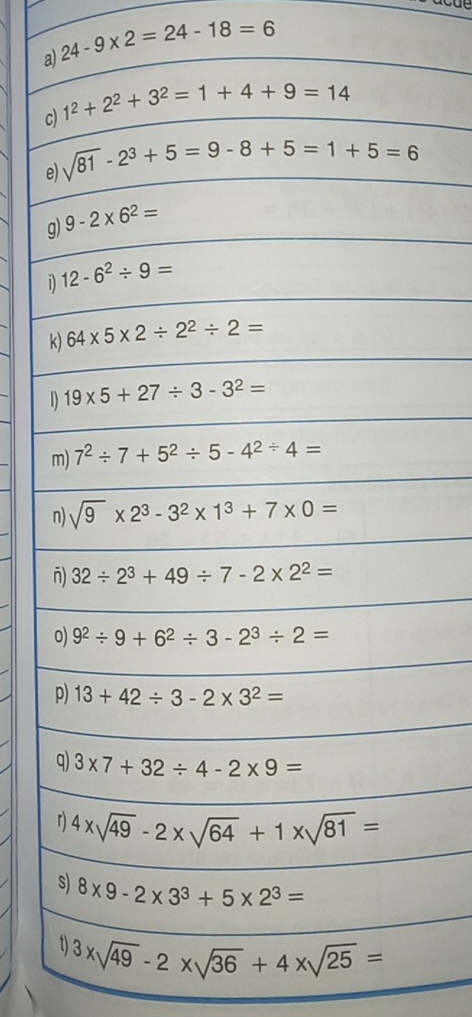 a) 24 - 9 x 2 = 24 - 18 = 6
c) 1² + 2² + 3² = 1 + 4 + 9 = 14
e) √81 - 2³ + 5 = 9 - 8 + 5 = 1 + 5 = 6
g) 9 - 2 x 6² =
i) 12 - 6² ÷ 9 =
k) 64 x 5 x 2 ÷ 2² ÷ 2 =
l) 19 x 5 + 27 ÷ 3 - 3² =
m) 7² ÷ 7 + 5² ÷ 5 - 4² ÷ 4 =
n) √9 x 2³ - 3² x 1³ + 7 x 0 =
ñ) 32 ÷ 2³ + 49 ÷ 7 - 2 x 2² =
o) 9² ÷ 9 + 6² ÷ 3 - 2³ ÷ 2 =
p) 13 + 42 ÷ 3 - 2 x 3² =
q) 3 x 7 + 32 ÷ 4 - 2 x 9 =
r) 4 x √49 - 2 x √64 + 1 x √81 =
s) 8 x 9 - 2 x 3³ + 5 x 2³ =
t) 3 x √49 - 2 x √36 + 4 x √25 =